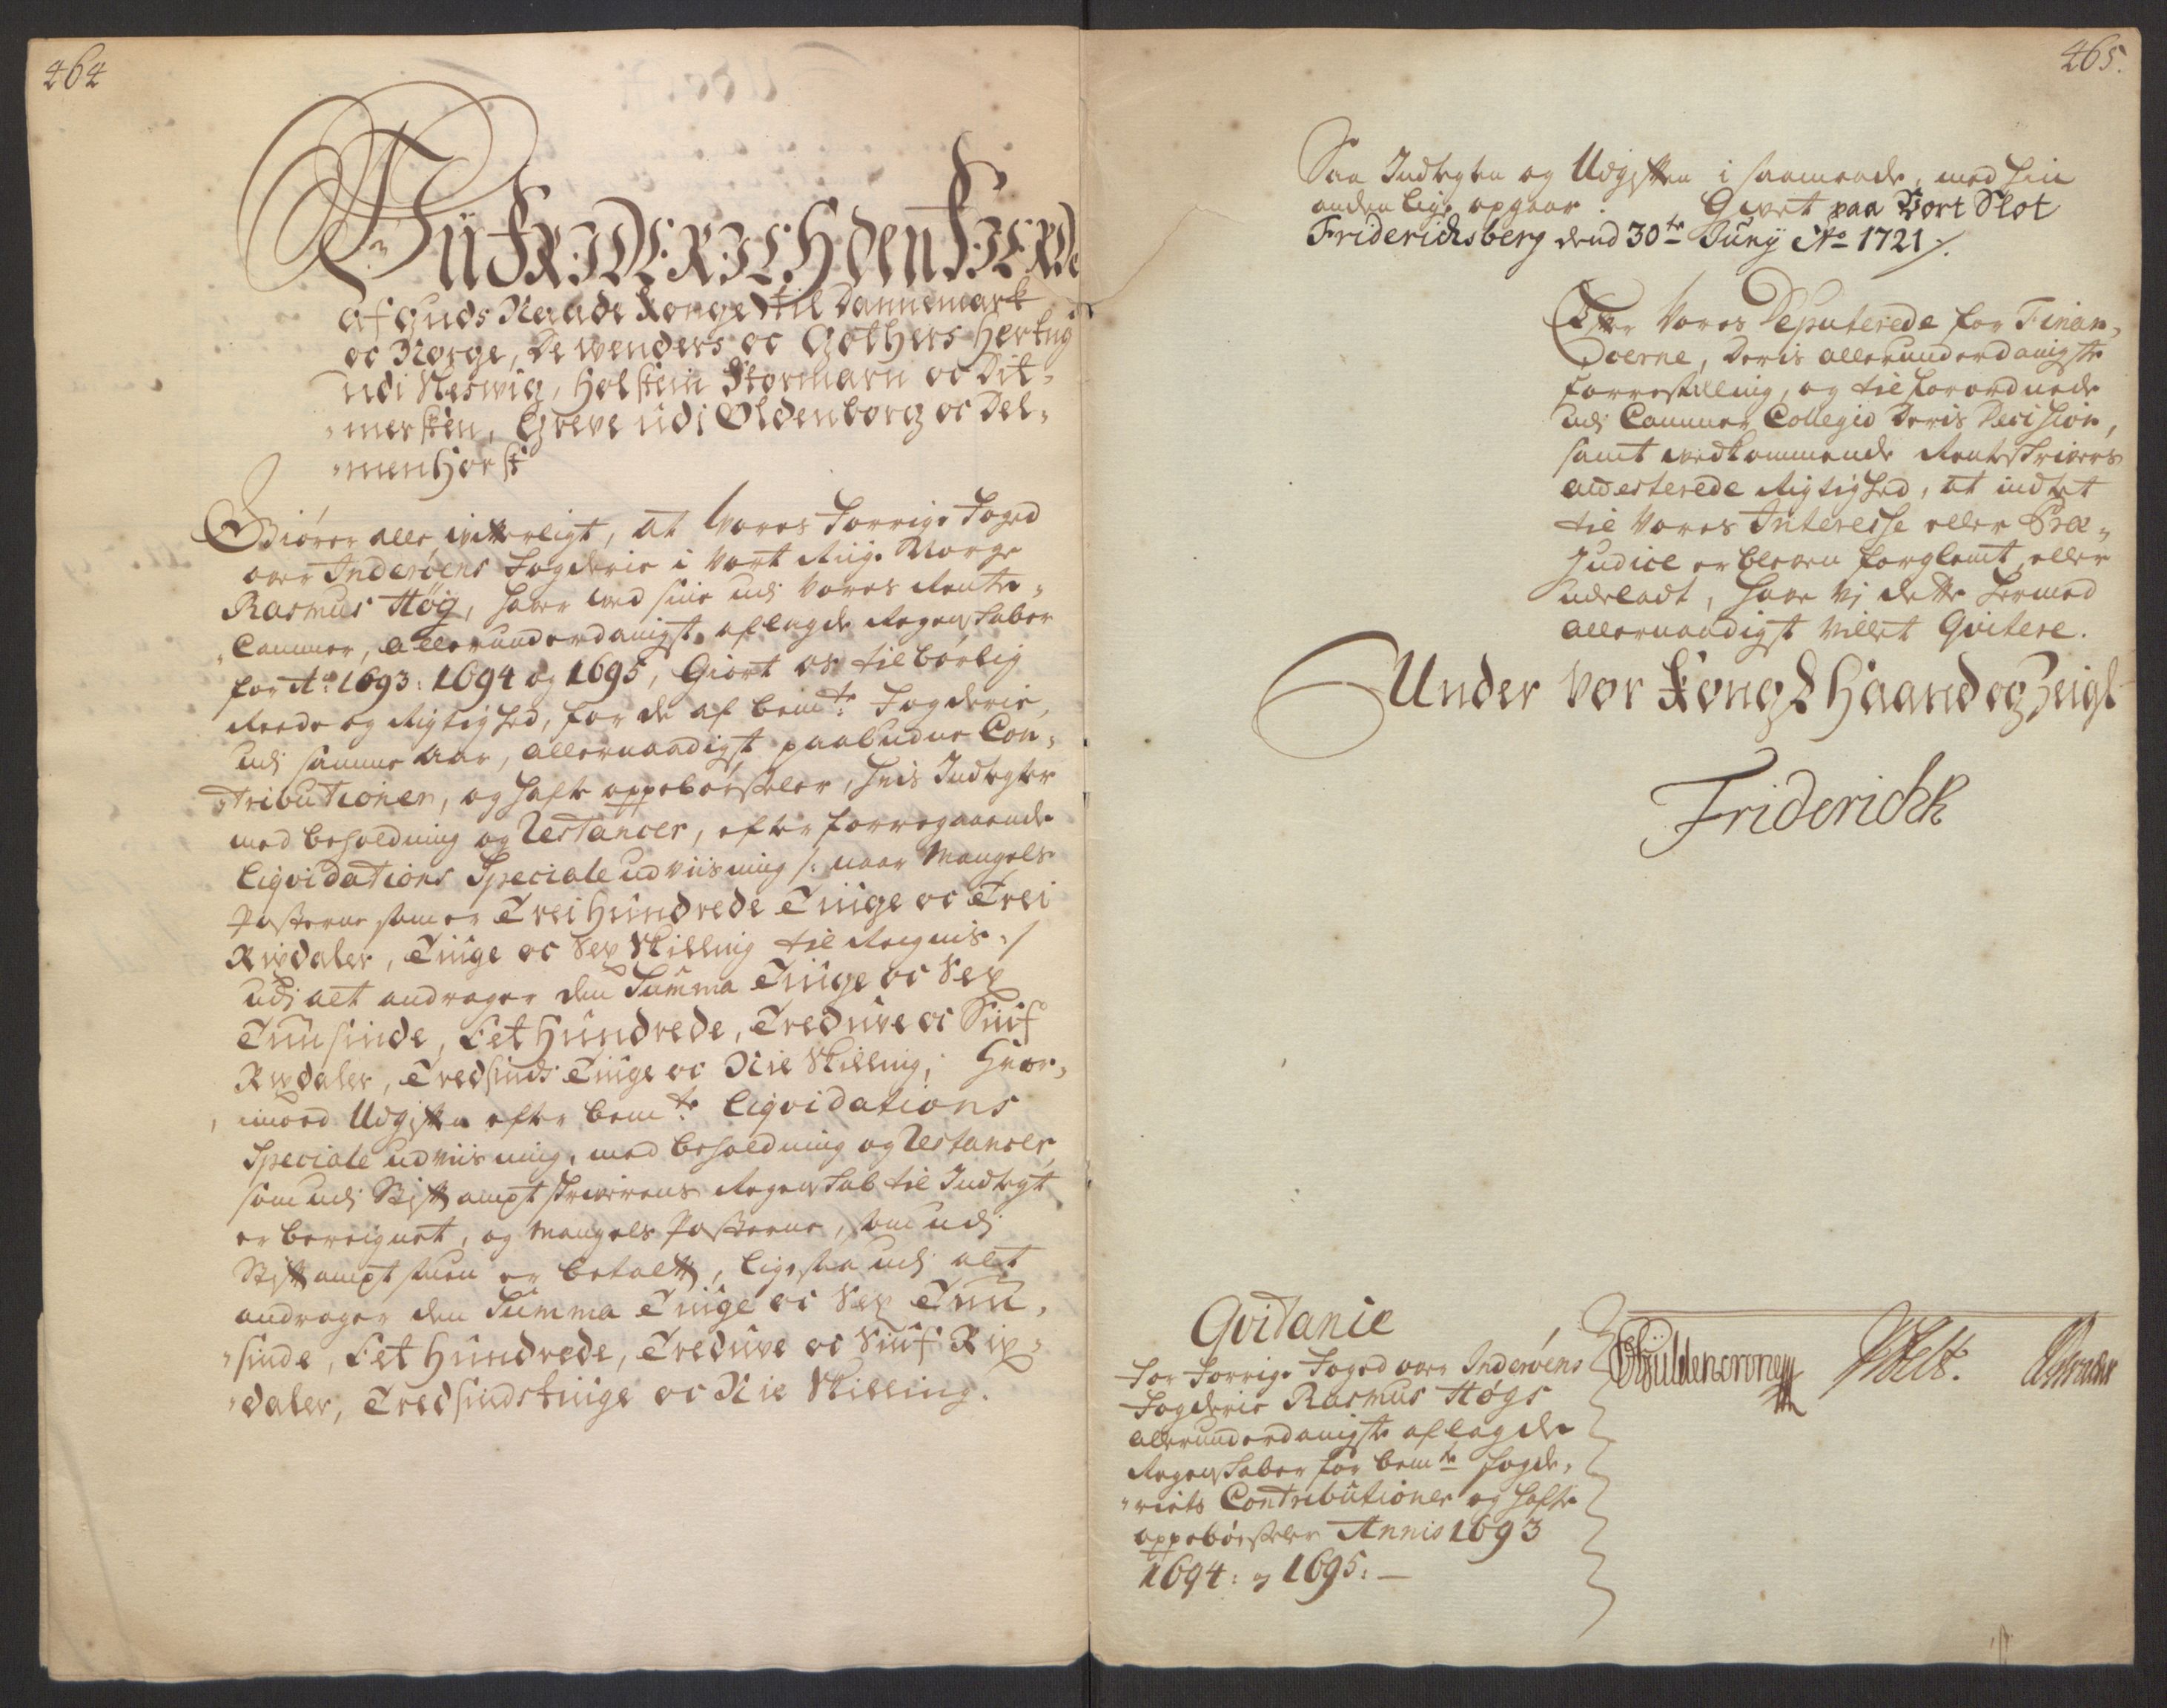 464
Wii FRIDERICH den FIERDe
af Guds Naade Konge til Dannemark
oc Norge, De Wenders oc Gothers Hertug
udi Slesvig, Holstein Stormarn oc Dit-
"mersken, Greve udi Oldenborg oc Del-
"menhorst
Giører alle vitterligt, at Vores Forrige Foged
over Inderøens Fogderie i Vort Riige Norge
Rasmus Høg, haver ved sine udi Vores Rente-
"Cammer, allerunderdanigst aflagde Regenskaber
for Ao. 1693: 1694 og 1695, Giort os tilbørlig
Reede og Rigtighed, for de af bemte: Fogderie,
udi samme Aar, allernaadigst paabudne Con-
"tributioner, og hafte oppebørseler, hvis Indtegter
med beholdning og Restancer, efter forregaaende
Liqvidations Speciale udviisning /: naar Mangels
Posterne som er Trei Hundrede Tiuge oc Trei
Rixdaler, Tiuge oc Sex Skilling til Regnis :/
udi alt andrager den Summa Tiuge oc Sex
Tuusinde, Eet Hundrede, Treduve oc Siuf
Rixdaler, Tredsinds Tiuge oc Nie Skilling; Hvor-
"imoed Udgiften efter bemte: Liqvidations
Speciale udviisning, med beholdning og Restancer,
som udi Stiftamptskriverens Regenskab til Indtegt
er bereignet, og Mangels Posterne, som udi
Stiftamptstuen er betalt, ligesaa udi alt
andrager den Summa Tiuge oc Sex Tuu-
"sinde, Eet Hundrede, Treduve oc Siuf Rix-
"daler, Tredsindstiuge oc Nie Skilling.
465.
Saa Indtegten og Udgiften i saamaade, med hin
anden lige opgaar. Givet paa Vort Slot
Friderichsberg dend 30te Juny Ao 1721 /.
Efter Vores Deputerede for Finan-
"cerne, Deris allerunderdanigste
forrestilling, og tilforordnede
udi Cammer Collegio Deris Decision,
samt vedkommende Renteskrivers
attesterede Rigtighed, at indtet
til Vores Interesse eller Præ-
"judice er bleven forglemt eller
udeladt, have Vi dette hermed
allernaadigst villet Qvitere.
Under Vor Kongl Haand og Zeigl
Friderich R
Qvitanie
For Forrige Foged over Inderøens
Fogderie Rasmus Høgs
allerunderdanigste aflagde
Regenskaber for bemte Fogde-
"riets Contributioner og hafte
oppebørseler Annis 1693
1694: og 1695: —
CGüldencrone